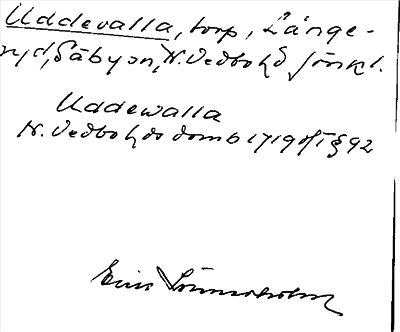 Uddevalla, torp, Länge-
ryd, Säby sn, N. Vedbo hd Jönk l.
Uddewalla
N. Vedbo hds domb 1719 §92